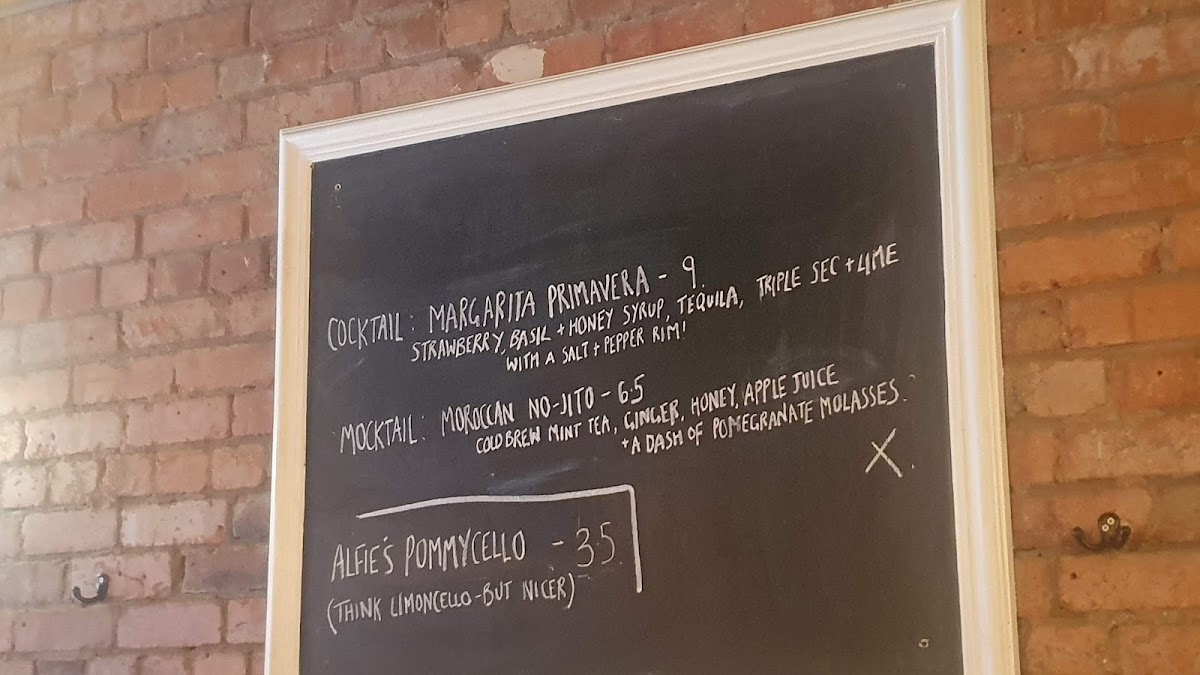 COCKTAIL: MARGARITA PRIMAVERA - 9.
STRAWBERRY, BASIL + HONEY SYRUP, TEQUILA, TRIPLE SEC + LIME
WITH A SALT + PEPPER RIM!
MOCKTAIL: MOROCCAN NO-JITO - 6.5
COLD BREW MINT TEA, GINGER, HONEY, APPLE JUICE
+ A DASH OF POMEGRANATE MOLASSES.
X.
ALFIE'S POMMYCELLO - 3.5
(THINK LIMONCELLO - BUT NICER)